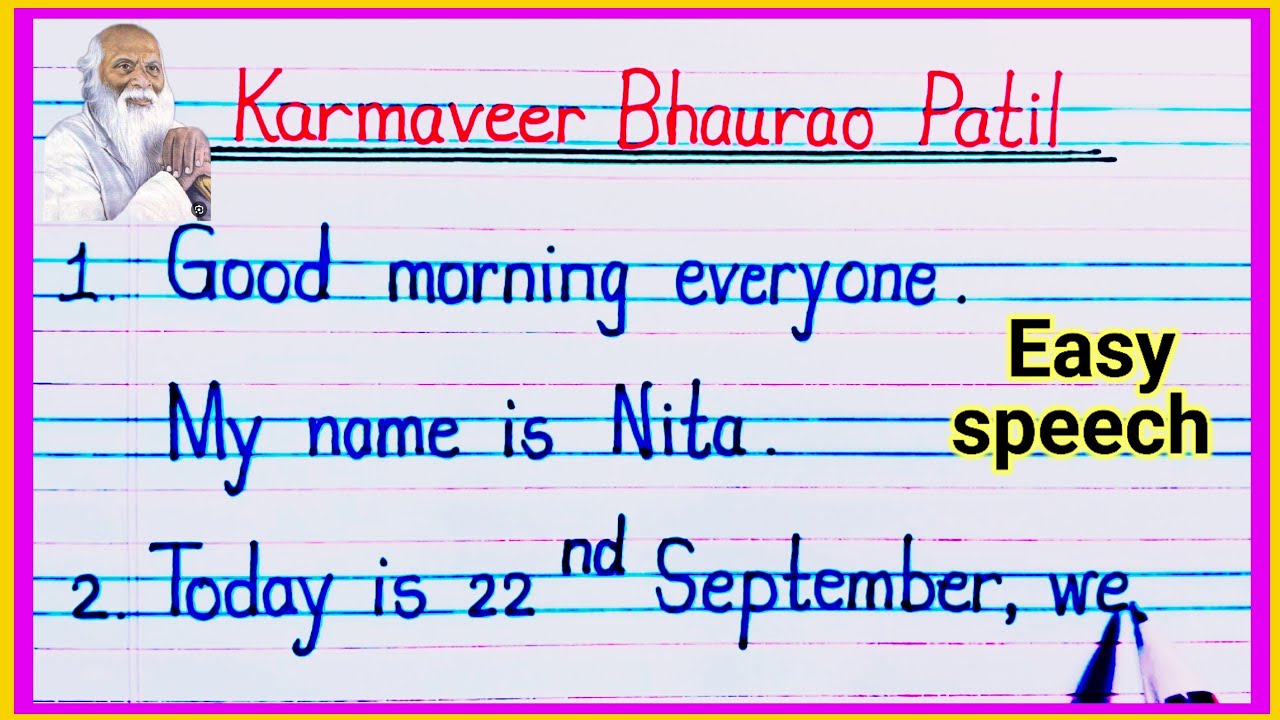 Karmaveer Bhaurao Patil
1. Good morning everyone.
My name is Nita.
Easy
speech
2. Today is 22nd September, we